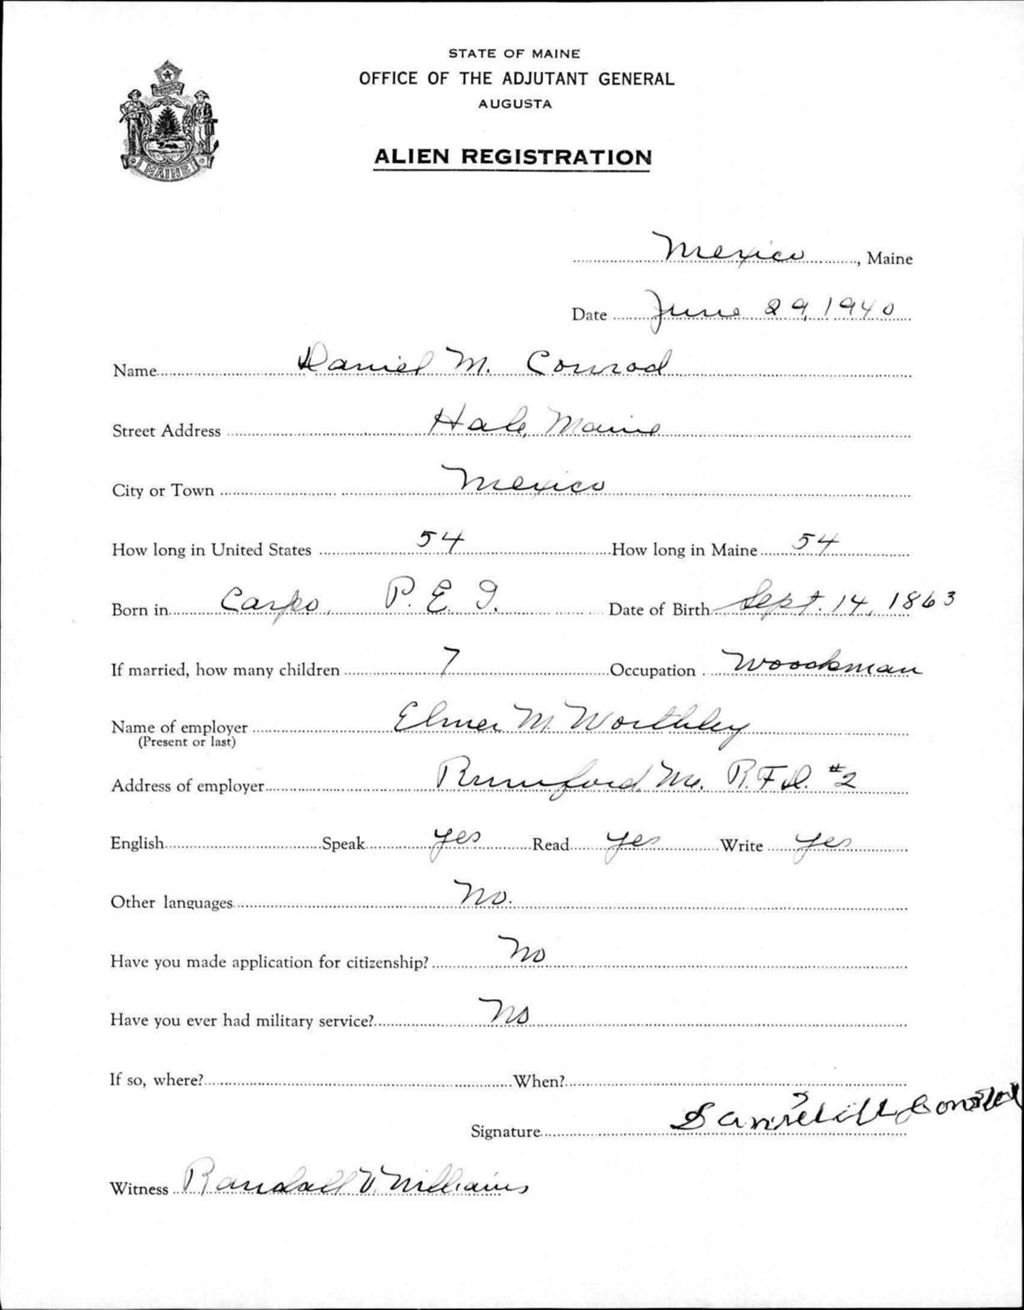 STATE OF MAINE
OFFICE OF THE ADJUTANT GENERAL
AUGUSTA
ALIEN REGISTRATION
MAINE
Mexico, Maine
Date June 29, 1940
Name Daniel M. Conrod
Street Address Hale, Maine
City or Town Mexico
How long in United States 54 How long in Maine 54
Born in P. E. I. Date of Birth Sept. 14, 1863
If married, how many children 7 Occupation Woodsman
Name of employer Elmer M. Worthley
(Present or last)
Address of employer Rumford, Me. R.F.D. #2
English Speak yes Read yes Write yes
Other languages No.
Have you made application for citizenship? No
Have you ever had military service? No
If so, where? When?
Signature Daniel M Conrod
Witness Randall V. Williams